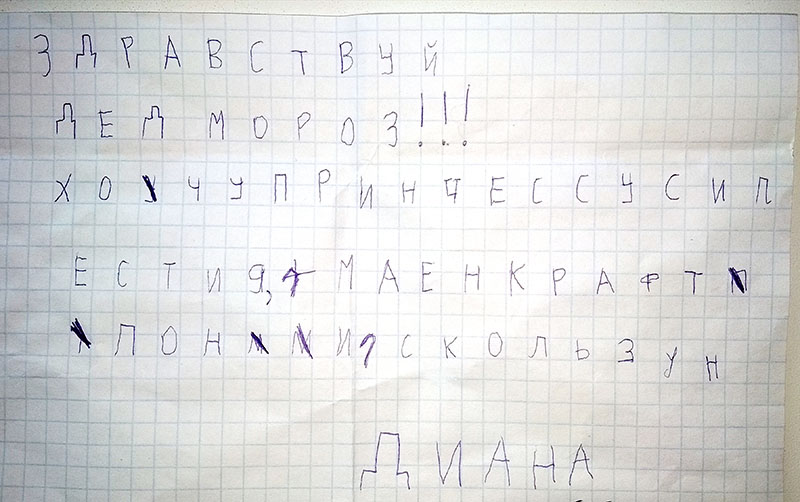 ЗДРАВСТВУЙ
ДЕД МОРОЗ!!!
ХОЧУ ПРИНЦЕССУ СИП
ЕСТИЯ, МАЕНКРАФТ
ПОНИ, СКОЛЬЗУН
ДИАНА